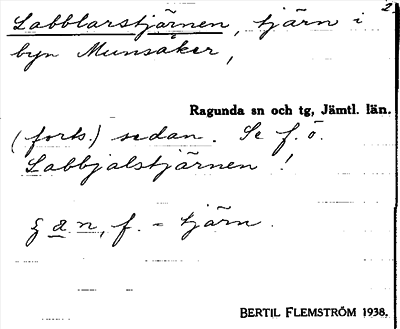 2.
Labblarstjärnen, tjärn i
byn Munsåker,
Ragunda sn och tg, Jämtl. län.
(forts.) sedan. Se f. ö.
Labbjalstjärnen!
§ a n, f. = tjärn.
BERTIL FLEMSTRÖM 1938.